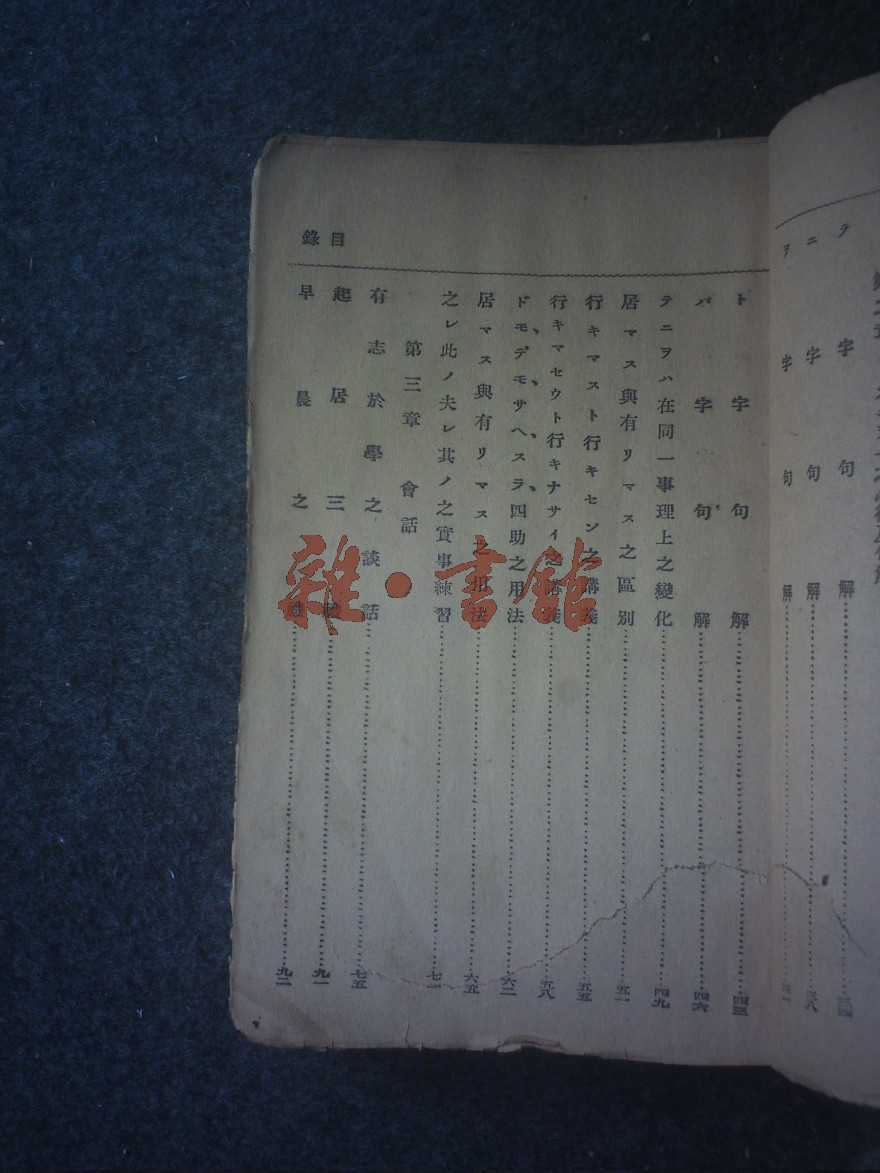 テ字句解……三四
ニ字句解……三八
ヲ字句解
目錄
ト字句解……四三
バ字句解……四六
テニヲハ在同一事理上之變化……四九
居マス與有リマス之區別……五一
行キマスト行キセン之講義……五五
行キマセウト行キナサイ之講義……五八
ドモ、デモ、サヘ、スラ、四助之用法……六二
居マス與有リマス之用法……六五
之レ此ノ夫レ其ノ之實事練習……七一
第三章 會話
有志於學之談話……七五
起居三……九一
早晨之……九二
雜·書館